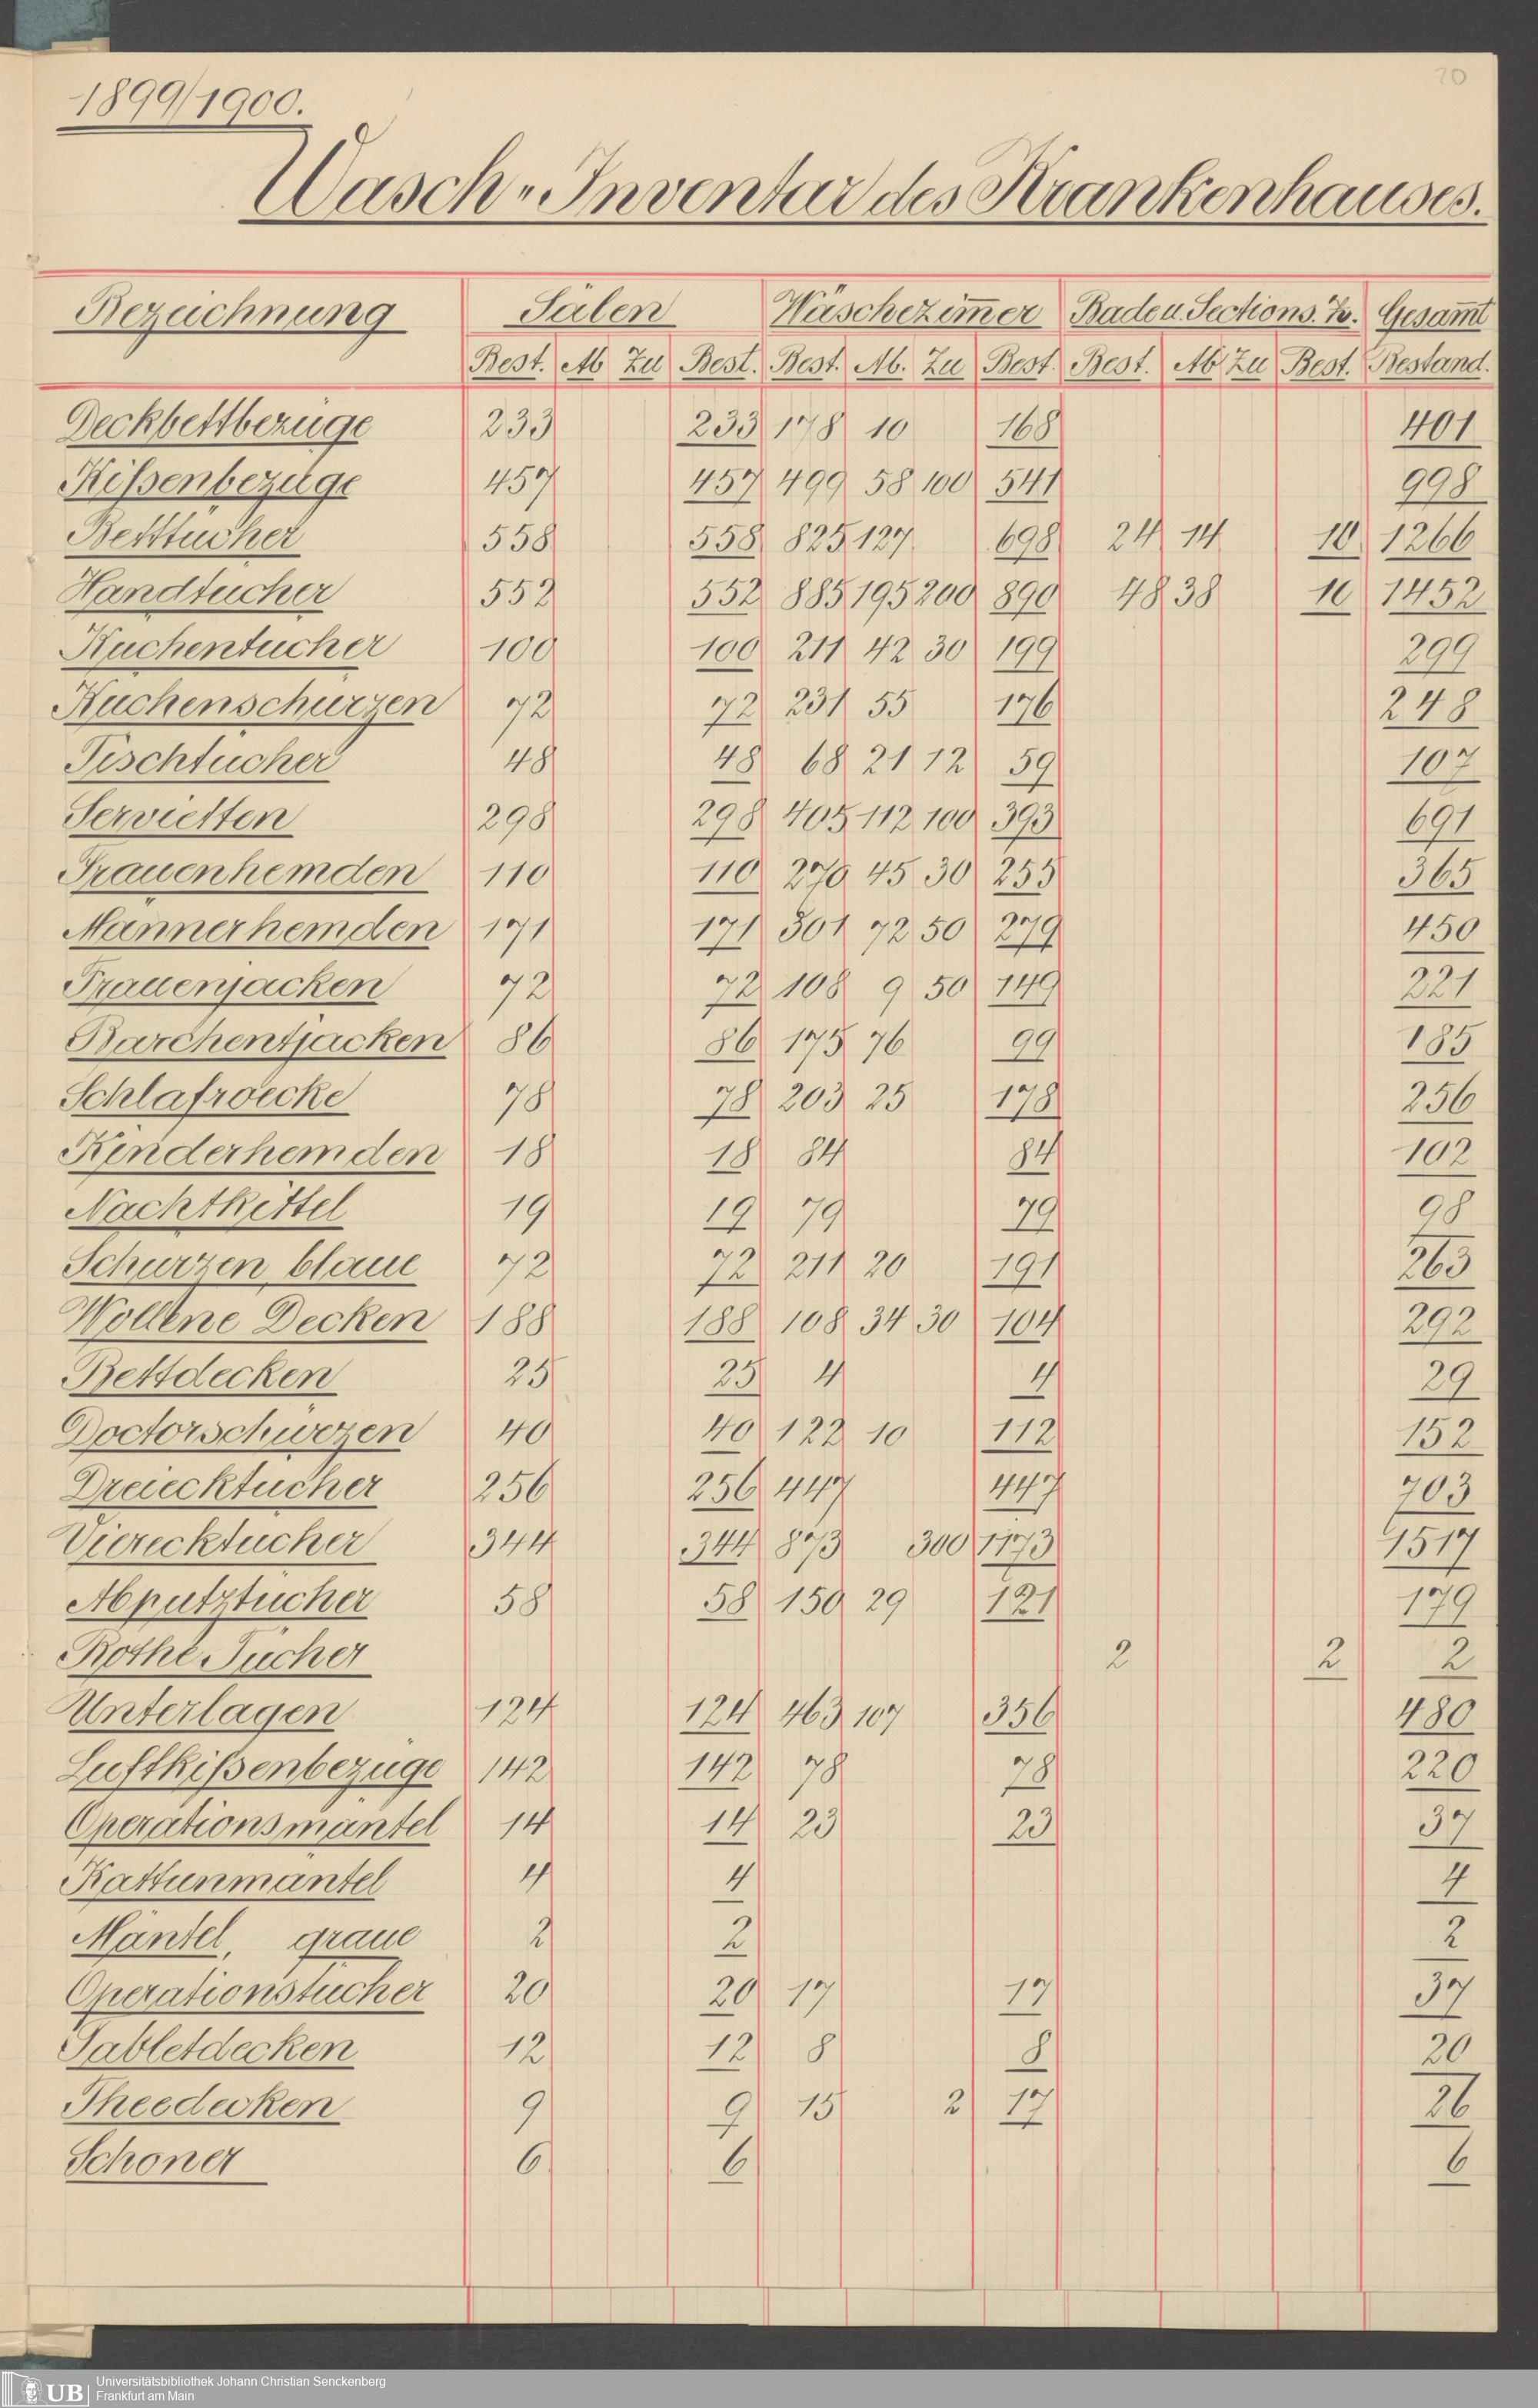 70
1899/1900.
Wasch-Inventar des Krankenhauses.
Bezeichnung Sälen Wäschezim̅er Bade u. Sections. Z. Gesam̅t
Best. Ab Zu Best. Best. Ab. Zu Best. Best. Ab Zu Best. Bestand.
Deckbettbezüge 233 233 178 10 168 401
Kißenbezüge 457 457 499 58 100 541 998
Betttücher 558 558 825 127 698 24 14 10 1266
Handtücher 552 552 885 195 200 890 48 38 10 1452
Küchentücher 100 100 211 42 30 199 299
Küchenschürzen 72 72 231 55 176 248
Tischtücher 48 48 68 21 12 59 107
Servietten 298 298 405 112 100 393 691
Frauenhemden 110 110 270 45 30 255 365
Männerhemden 171 171 301 72 50 279 450
Frauenjacken 72 72 108 9 50 149 221
Barchentjacken 86 86 175 76 99 185
Schlafroecke 78 78 203 25 178 256
Kinderhemden 18 18 84 84 102
Nachtkittel 19 19 79 79 98
Schürzen, blaue 72 72 211 20 191 263
Wollene Decken 188 188 108 34 30 104 292
Bettdecken 25 25 4 4 29
Doctorschürzen 40 40 122 10 112 152
Dreiecktücher 256 256 447 447 703
Vierecktücher 344 344 873 300 1173 1517
Abputztücher 58 58 150 29 121 179
Rothe Tücher 2 2 2
Unterlagen 124 124 463 107 356 480
Luftkißenbezüge 142 142 78 78 220
Operationsmäntel 14 14 23 23 37
Kattunmäntel 4 4 4
Mäntel, graue 2 2 2
Operationstücher 20 20 17 17 37
Tabletdecken 12 12 8 8 20
Theedecken 9 9 15 2 17 26
Schoner 6 6 6
UB Universitätsbibliothek Johann Christian Senckenberg
Frankfurt am Main